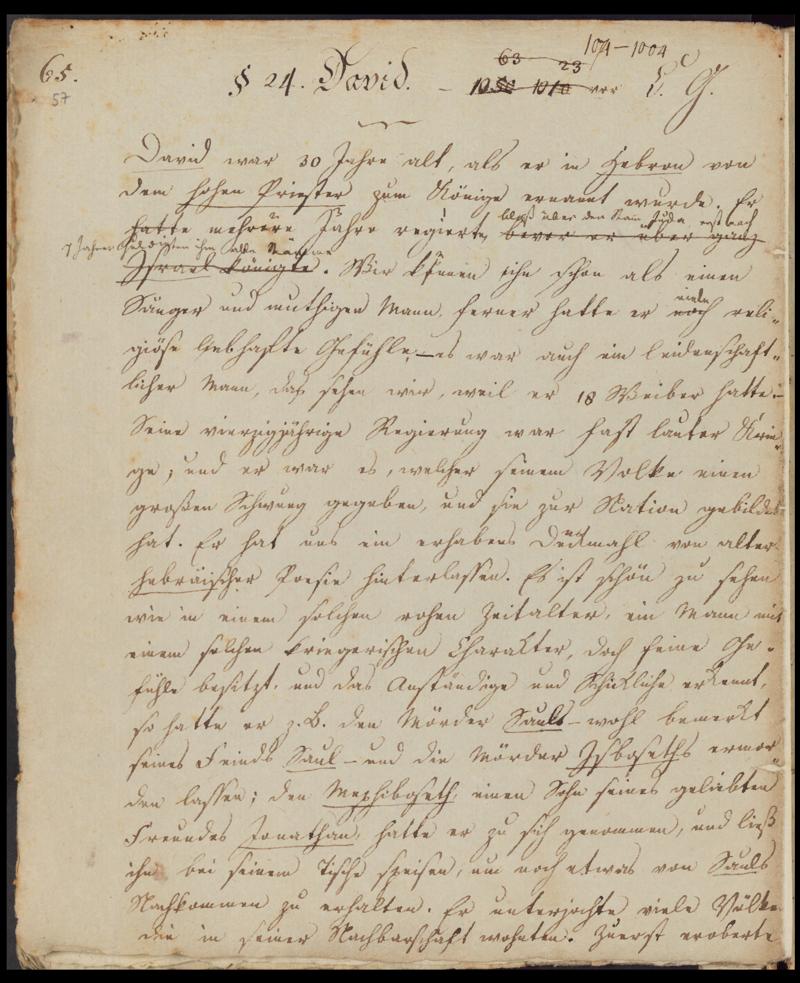 65.
57
1074–1004
63 23
§ 24. David. – 1050 1010 vor C. G.
David war 30 Jahre alt, als er in Hebron von
dem hohen Priester zum Könige ernannt wurde. Er
bloß über den Stam Juda, erst nach
hatte mehrere Jahre regierte, bevor er über ganz
7 Jahren huldigten ihm alle Stämme
Israel königte. Wir können ihn schon als einen
Sänger und muthigen Mann, ferner hatte er noch reli-
viele
giöse lebhafte Gefühle, – es war auch ein leidenschaft-
licher Mann, das sehen wir, weil er 18 Weiber hatte. –
Seine vierzigjährige Regierung war fast lauter Krie-
ge; und er war es, welcher seinem Volke einen
großen Schwung gegeben, und sie zur Nation gebildet
hat. Er hat uns ein erhabens Denkmahl von alter
hebräischer Poesie hinterlassen. Es ist schön zu sehen
wie in einem solchen rohen Zeitalter, ein Mann mit
einem solchen kriegerischen Charakter, doch feine Ge-
fühle besitzt, und das Anständige und Schickliche erkennt,
so hatte er z. B. den Mörder Sauls – wohl bemerkt
seines Feinds Saul – und die Mörder Isboseths ermor-
den lassen; den Mephiboseth, einen Sohn seines geliebten
Freundes Jonathan, hatte er zu sich genommen, und ließ
ihn bei seinem Tische speisen, um noch etwas von Sauls
Nachkommen zu erhalten. Er unterjochte viele Völker
die in seiner Nachbarschaft wohnten. Zuerst eroberte